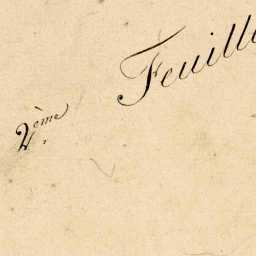 2ème Feuill